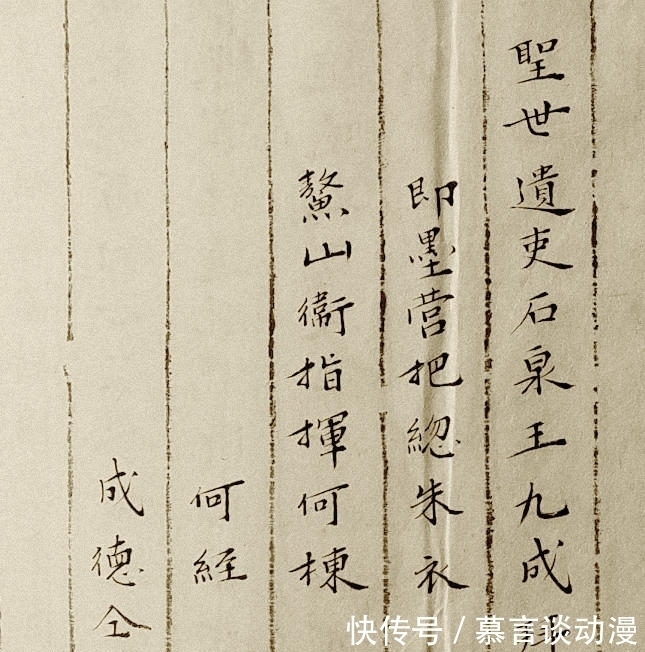 聖世遺吏石泉王九成
即墨营把緫朱衣
鰲山衞指揮何棟
何経
成德仝
快传号/慕言谈动漫